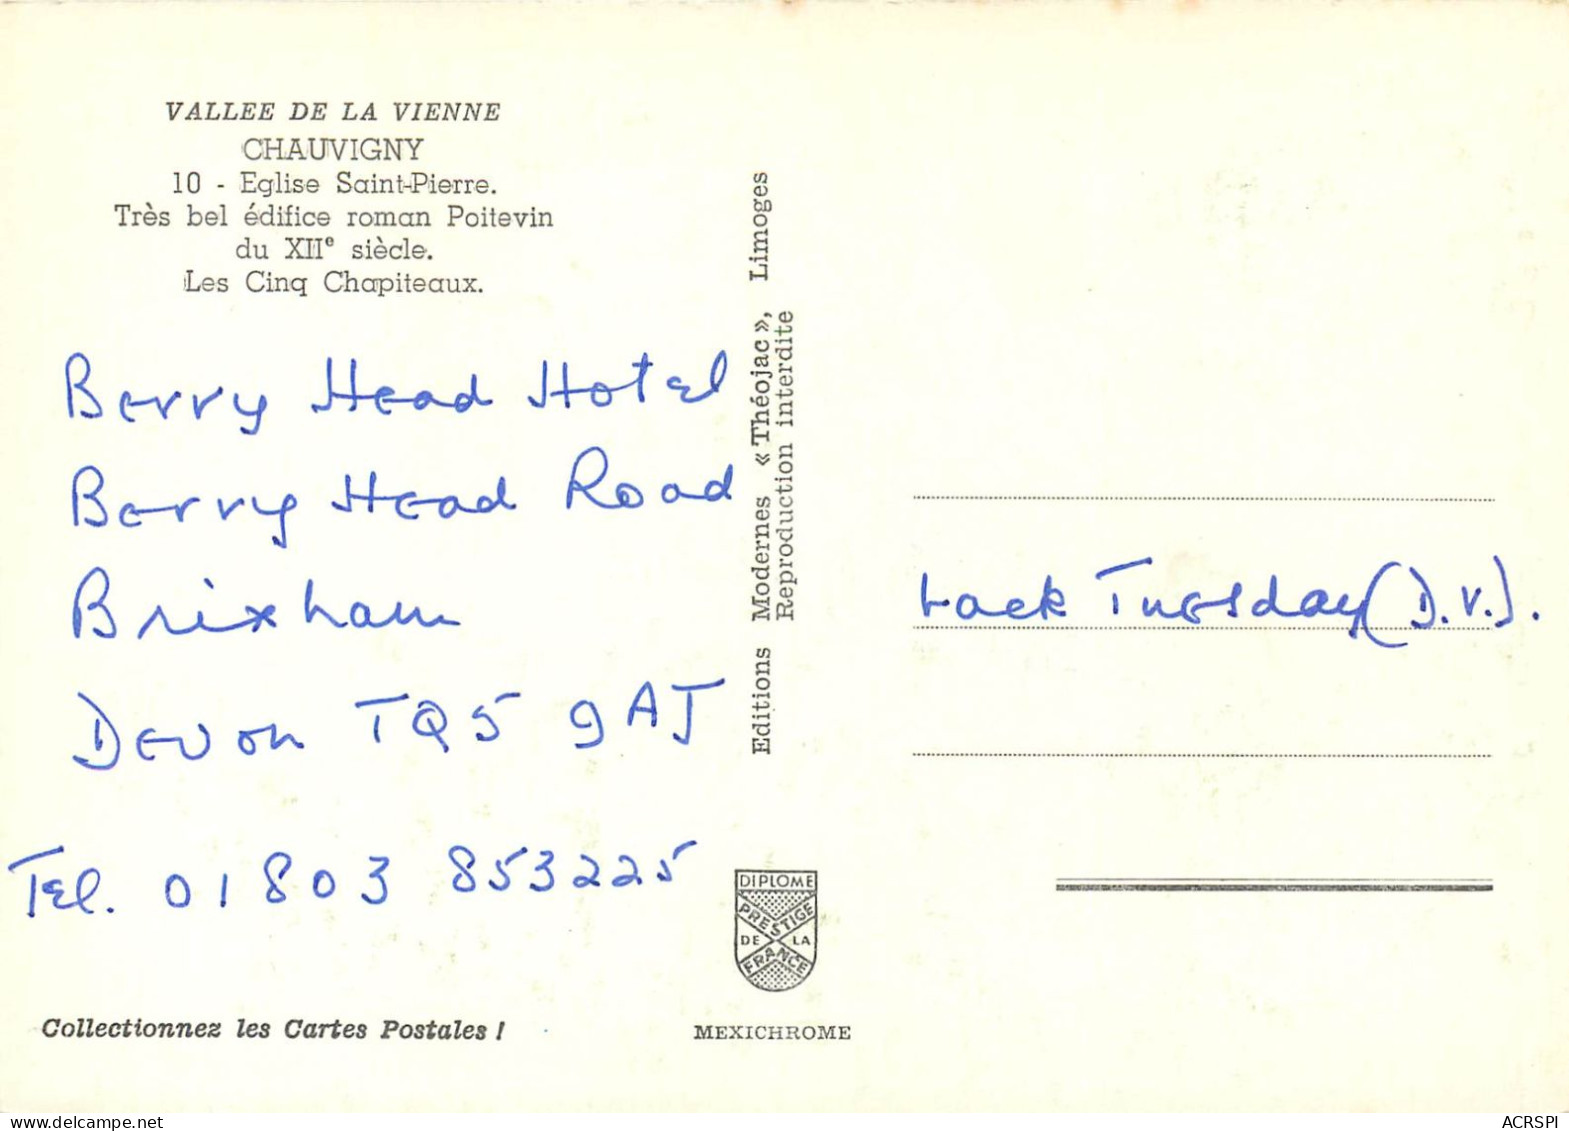 VALLEE DE LA VIENNE
CHAUVIGNY
10 - Eglise Saint-Pierre.
Très bel édifice roman Poitevin
du XIIe siècle.
Les Cinq Chapiteaux.
Berry Head Hotel
Berry Head Road
Brixham
Devon TQ5 9AJ
Tel. 01803 853225
Collectionnez les Cartes Postales !
Editions Modernes « Théojac », Limoges
Reproduction interdite
DIPLOME
PRESTIGE
DE LA
FRANCE
MEXICHROME
back Tuesday (D.V.).
delcampe.net
ACRSPI